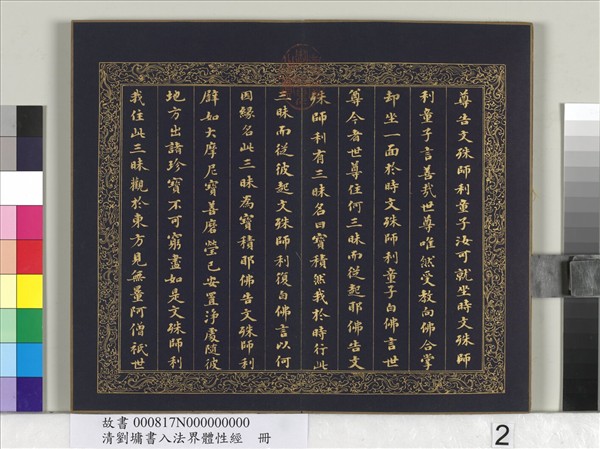 尊告文殊師利童子汝可就坐時文殊師
利童子言善哉世尊唯然受教向佛合掌
却坐一面於時文殊師利童子白佛言世
尊今者世尊住何三昧而從起耶佛告文
殊師利有三昧名曰寶積然我於時行此
三昧而從彼起文殊師利復白佛言以何
因緣名此三昧為寶積耶佛告文殊師利
辟如大摩尼寶善磨瑩已安置淨處隨彼
地方出諸珍寶不可窮盡如是文殊師利
我住此三昧觀於東方見無量阿僧祇世
故書 000817N000000000
清劉墉書入法界體性經 冊
2